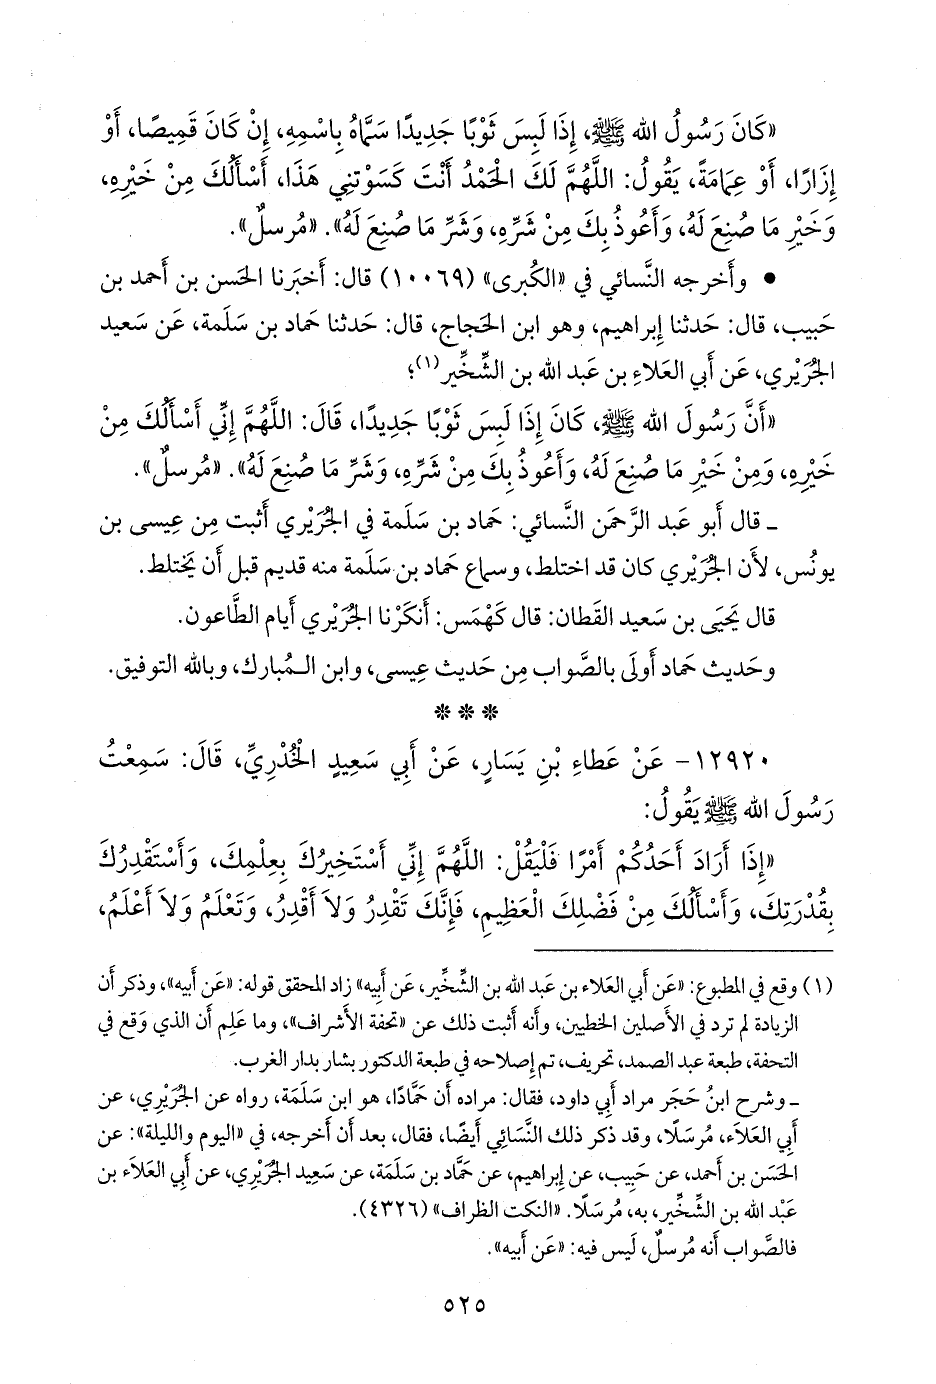 «كَانَ رَسُولُ الله ﷺ، إِذَا لَبِسَ ثَوْبًا جَدِيدًا سَمَّاهُ بِاسْمِهِ، إِنْ كَانَ قَمِيصًا، أَوْ
إِزَارًا، أَوْ عِمَامَةً، يَقُولُ: اللَّهُمَّ لَكَ الْحَمْدُ أَنْتَ كَسَوْتنِي هَذَا، أَسْأَلُكَ مِنْ خَيْرِهِ،
وَخَيْرِ مَا صُنِعَ لَهُ، وَأَعُوذُ بِكَ مِنْ شَرِّهِ، وَشَرِّ مَا صُنِعَ لَهُ». «مُرسلٌ».
• وأَخرجه النَّسائي في «الكُبرى» (١٠٠٦٩) قال: أَخبَرنا الحَسن بن أَحمد بن
حَبيب، قال: حَدثنا إِبراهيم، وهو ابن الحَجاج، قال: حَدثنا حَماد بن سَلَمة، عَن سَعيد
الجُرَيْري، عَن أَبي العَلاءِ بن عَبد الله بن الشِّخِّير(١)؛
«أَنَّ رَسُولَ الله ﷺ، كَانَ إِذَا لَبِسَ ثَوْبًا جَدِيدًا، قَالَ: اللَّهُمَّ إِنِّي أَسْأَلُكَ مِنْ
خَيْرِهِ، وَمِنْ خَيْرِ مَا صُنِعَ لَهُ، وَأَعُوذُ بِكَ مِنْ شَرِّهِ، وَشَرِّ مَا صُنِعَ لَهُ». «مُرسلٌ».
ـ قال أَبو عَبد الرَّحمَن النَّسائي: حَماد بن سَلَمة في الجُرَيْري أَثبت مِن عِيسى بن
يونُس، لأَن الجُرَيْري كان قد اختلط، وسماع حَماد بن سَلَمة منه قديم قبل أَن يَختلط.
قال يَحيَى بن سَعيد القَطان: قال كَهْمَس: أَنكَرْنا الجُرَيْري أَيام الطَّاعون.
وحَديث حَماد أَولَى بالصَّواب مِن حَديث عِيسى، وابن الـمُبارك، وبالله التوفيق.
* * *
١٢٩٢٠- عَنْ عَطَاءِ بْنِ يَسَارٍ، عَنْ أَبِي سَعِيدٍ الْخُدْرِيِّ، قَالَ: سَمِعْتُ
رَسُولَ الله ﷺ يَقُولُ:
«إِذَا أَرَادَ أَحَدُكُمْ أَمْرًا فَلْيَقُلْ: اللَّهُمَّ إِنِّي أَسْتَخِيرُكَ بِعِلْمِكَ، وَأَسْتَقْدِرُكَ
بِقُدْرَتِكَ، وَأَسْأَلُكَ مِنْ فَضْلِكَ الْعَظِيمِ، فَإِنَّكَ تَقْدِرُ وَلاَ أَقْدِرُ، وَتَعْلَمُ وَلاَ أَعْلَمُ،
(١) وقع في المطبوع: «عَن أَبي العَلاء بن عَبد الله بن الشِّخِّير، عَن أَبيه» زاد المحقق قوله: «عَن أَبيه»، وذكر أَن
الزيادة لم ترد في الأَصلين الخطيين، وأَنه أَثبت ذلك عن «تحفة الأَشراف»، وما عَلِم أَن الذي وَقع في
التحفة، طبعة عبد الصمد، تحريف، تم إِصلاحه في طبعة الدكتور بشار بدار الغرب.
ـ وشرح ابنُ حَجَر مراد أَبي داود، فقال: مراده أَن حَمَّادًا، هو ابن سَلَمَة، رواه عن الجُرَيْرِي، عن
أَبي العَلاَء، مُرسَلًا، وقد ذكر ذلك النَّسَائِي أَيضًا، فقال، بعد أَن أَخرجه، في «اليوم والليلة»: عن
الحَسَن بن أَحمد، عن حَبِيب، عن إِبراهيم، عن حَمَّاد بن سَلَمَة، عن سَعيد الجُرَيْرِي، عن أَبي العَلاَء بن
عَبْد الله بن الشِّخِّير، به، مُرسَلًا. «النكت الظراف» (٤٣٢٦).
فالصَّواب أَنه مُرسلٌ، لَيس فيه: «عَن أَبيه».
٥٢٥